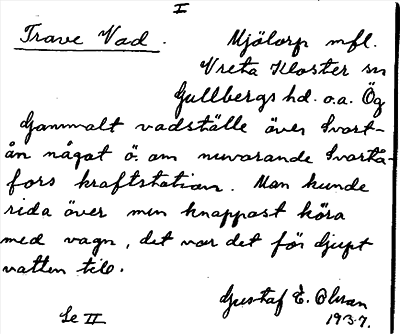 I
Trave Vad. Mjölorp mfl.
Vreta Kloster sn
Gullbergs hd. o.a. Ög
Gammalt vadställe över Svart-
ån något ö. om nuvarande Svartå-
fors kraftstation. Man kunde
rida över men knappast köra
med vagn, det var det för djupt
vatten til.
Gustaf E. Olsson
Se II 1937.